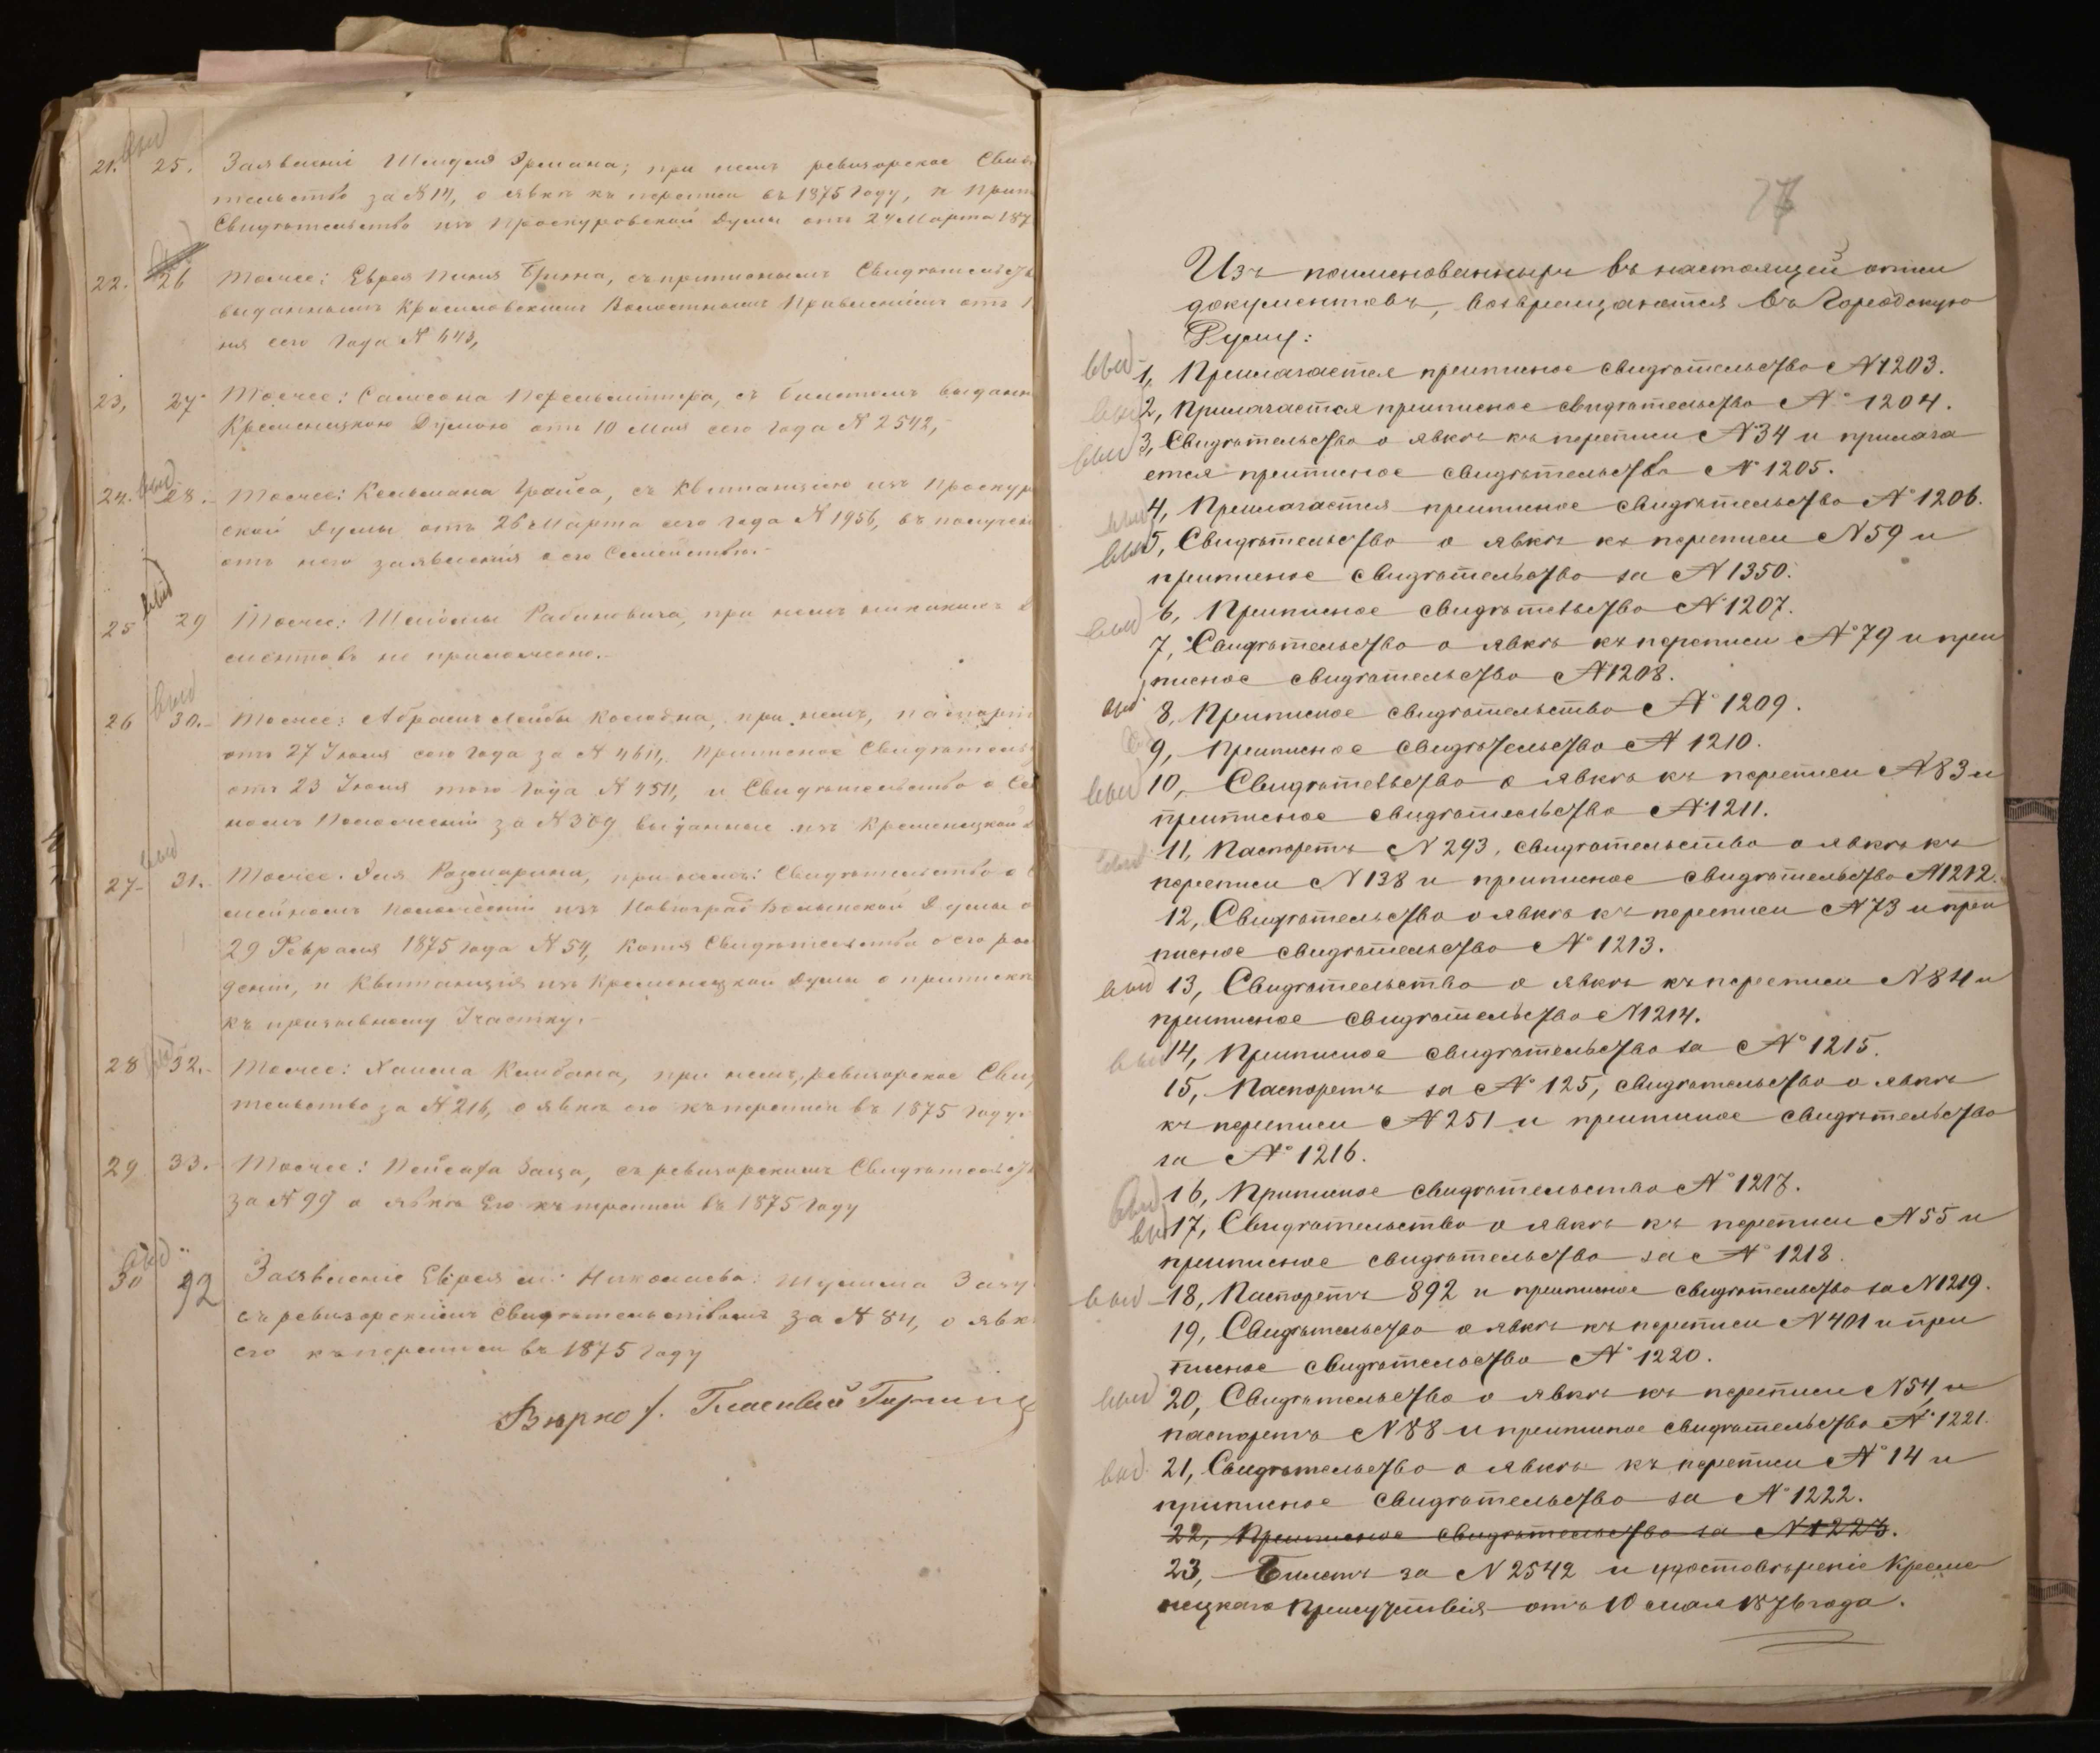 выд
21. 25. Заявленіе Шмуля Эрмана; при немъ ревизорское Свидѣ
тельство за № 14, о явкѣ къ переписи въ 1875 году, и Припи
Свидѣтельство изъ Проскуровской Думы отъ 24 Марта 187
22. 26 Тоже: Еврея Пиня Брика, съ приписнымъ Свидѣтельств
выданнымъ Красиловскимъ Волостнымъ Правленіемъ отъ 1
ня сего года № 643,
23, 27 Тоже: Самсона Перельмиттра, съ билетомъ выданн
Кременецкою Думою отъ 10 Мая сего года № 2542,-
24. выд 28. Тоже: Кельмана Грайса, съ квитанціею изъ Проскур
ской Думы отъ 26 Марта сего года № 1956, въ получен
отъ него заявленія о его Семействѣ.-
выд
25 29 Тоже: Шлиомы Рабиновича, при немъ никакихъ д
ментовъ не приложено.-
выд
26 30.- Тоже: Абрамъ Лейбы Колодна, при немъ, паспорт
отъ 27 Іюля сего года за № 4611, Приписное Свидѣтельс
отъ 23 Іюля того года № 4511, и Свидѣтельство о Се
номъ Положеніи за № 309 выданные изъ Кременецкой Д
выд
27- 31.- Тоже. Эля Розмарина, при немъ: Свидѣтельство о С
мейномъ положеніи изъ Новоградволынской Думы о
29 Февраля 1875 года № 54, копія Свидѣтельства о его рож
деніи, и Квитанція изъ Кременецкой Думы о приписк
къ призывному Участку.-
28 выд 32.- Тоже: Хаима Клибана, при немъ, ревизорское Свид
тельство за № 216, о явкѣ его къ переписи въ 1875 году.
29 33. Тоже: Пейсаха Заца, съ ревизорскимъ Свидѣтельств
за № 99 о явкѣ Его къ переписи въ 1875 году
выд
30 92 Заявленіе Еврея м: Николаева: Шулима Заку
съ ревизорскимъ Свидѣтельствомъ за № 84, о явк
его къ переписи въ 1875 году
Вѣрно
Гласный
Изъ поименованныхъ въ настоящей описи
документовъ, возвращаются въ Городскую
Думу:
выд 1, Прилагается приписное свидѣтельство № 1203.
выд 2, Прилагается приписное свидѣтельство № 1204.
выд 3, Свидѣтельство о явкѣ къ переписи № 34 и прилага
ется приписное свидѣтельство № 1205.
выд 4, Прилагается приписное свидѣтельство № 1206.
выд 5, Свидѣтельство о явкѣ къ переписи № 59 и
приписное свидѣтельство за № 1350.
выд 6, Приписное свидѣтельство № 1207.
7, Свидѣтельство о явкѣ къ переписи № 79 и при
писное свидѣтельство № 1208.
выд 8, Приписное свидѣтельство № 1209.
9, Приписное свидѣтельство № 1210.
выд 10, Свидѣтельство о явкѣ къ переписи № 83 и
приписное свидѣтельство № 1211.
выд 11, Паспортъ № 293, свидѣтельство о явкѣ къ
переписи № 138 и приписное свидѣтельство № 1212.
12, Свидѣтельство о явкѣ къ переписи № 73 и при
писное свидѣтельство № 1213.
выд 13, Свидѣтельство о явкѣ къ переписи № 84 и
приписное свидѣтельство № 1214.
выд 14, Приписное свидѣтельство за № 1215.
15, Паспортъ за № 125, свидѣтельство о явкѣ
къ переписи № 251 и приписное свидѣтельство
за № 1216.
выд 16, Приписное свидѣтельство № 1217.
выд 17, Свидѣтельство о явкѣ къ переписи № 55 и
приписное свидѣтельство за № 1218.
выд 18, Паспортъ 892 и приписное свидѣтельство за № 1219.
19, Свидѣтельство о явкѣ къ переписи № 401 и при
писное свидѣтельство № 1220.
выд 20, Свидѣтельство о явкѣ къ переписи № 54, и
паспортъ № 88 и приписное свидѣтельство № 1221.
выд 21, Свидѣтельство о явкѣ къ переписи № 14 и
приписное свидѣтельство за № 1222.
22, Приписное свидѣтельство за № 1223.
23, Билетъ за № 2542 и удостовѣреніе Креме
нецкаго Присутствія отъ 10 мая 1876 года.